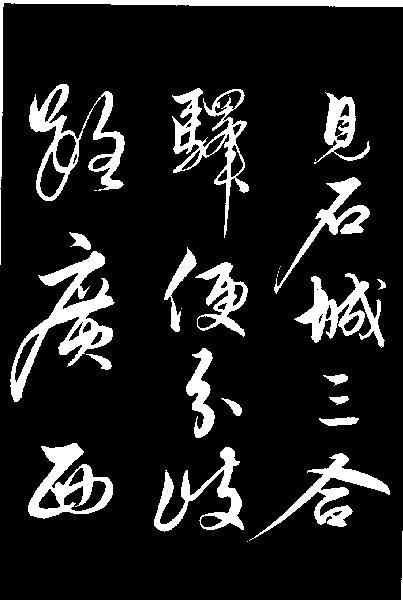 見石城三合
驛便分歧
廣西